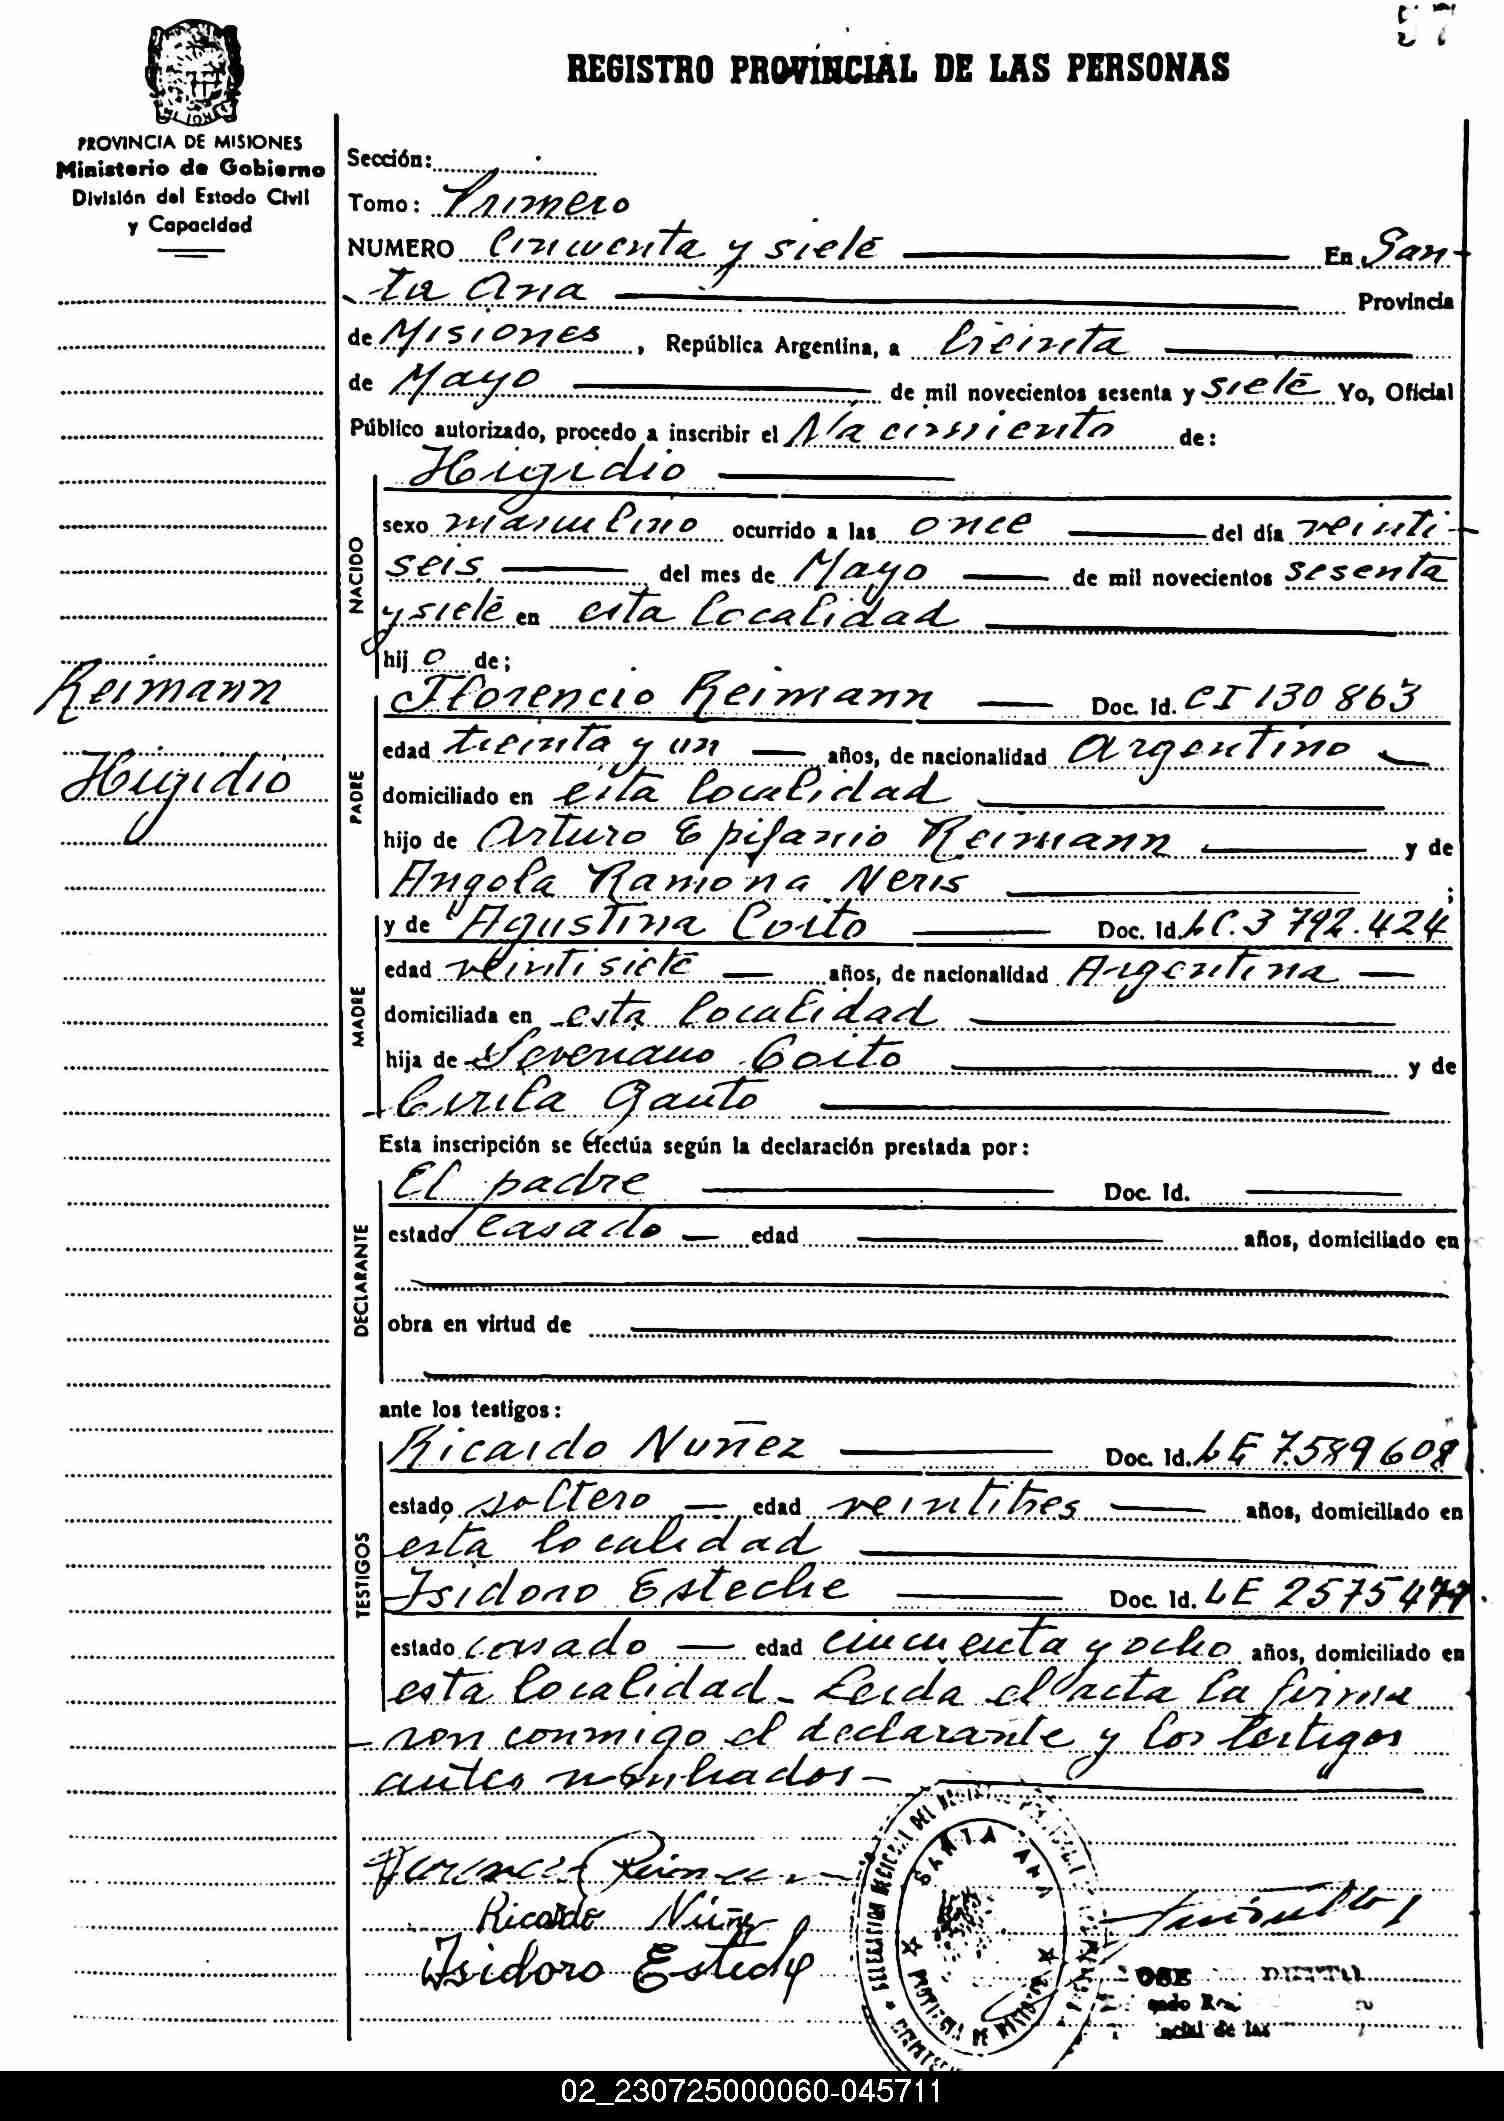 57
REGISTRO PROVINCIAL DE LAS PERSONAS
PROVINCIA DE MISIONES
Ministerio de Gobierno
División del Estado Civil
y Capacidad
Sección:
Tomo: Primero
NUMERO Cincuenta y siete En San-
ta Ana Provincia
de Misiones, República Argentina, a treinta
de Mayo de mil novecientos sesenta y siete Yo, Oficial
Público autorizado, procedo a inscribir el Nacimiento de:
Higidio
NACIDO
sexo masculino ocurrido a las once del día veinti-
seis del mes de Mayo de mil novecientos sesenta
y siete en esta localidad
hijo de;
Reimann
Higidio
PADRE
Florencio Reimann Doc. Id. CI 130 863
edad treinta y un años, de nacionalidad Argentino
domiciliado en esta localidad
hijo de Arturo Epifanio Reimann y de
Angela Ramona Neris ;
MADRE
y de Agustina Coito Doc. Id. LC. 3 792.424
edad veintisiete años, de nacionalidad Argentina
domiciliada en esta localidad
hija de Severiano Coito y de
Cirila Gauto
Esta inscripción se efectúa según la declaración prestada por:
DECLARANTE
El padre Doc. Id.
estado casado edad años, domiciliado en
obra en virtud de
ante los testigos:
TESTIGOS
Ricardo Nuñez Doc. Id. LE 7.589608
estado soltero edad veintitres años, domiciliado en
esta localidad
Isidoro Esteche Doc. Id. LE 2575
estado casado edad cincuenta y ocho años, domiciliado en
esta localidad_ Leida el acta la firma
ron conmigo el declarante y los testigos
antes nombrados-
Ricardo Núñez
Isidoro Esteche
SANTA ANA
PROVINCIA DE MISIONES
02_230725000060-045711